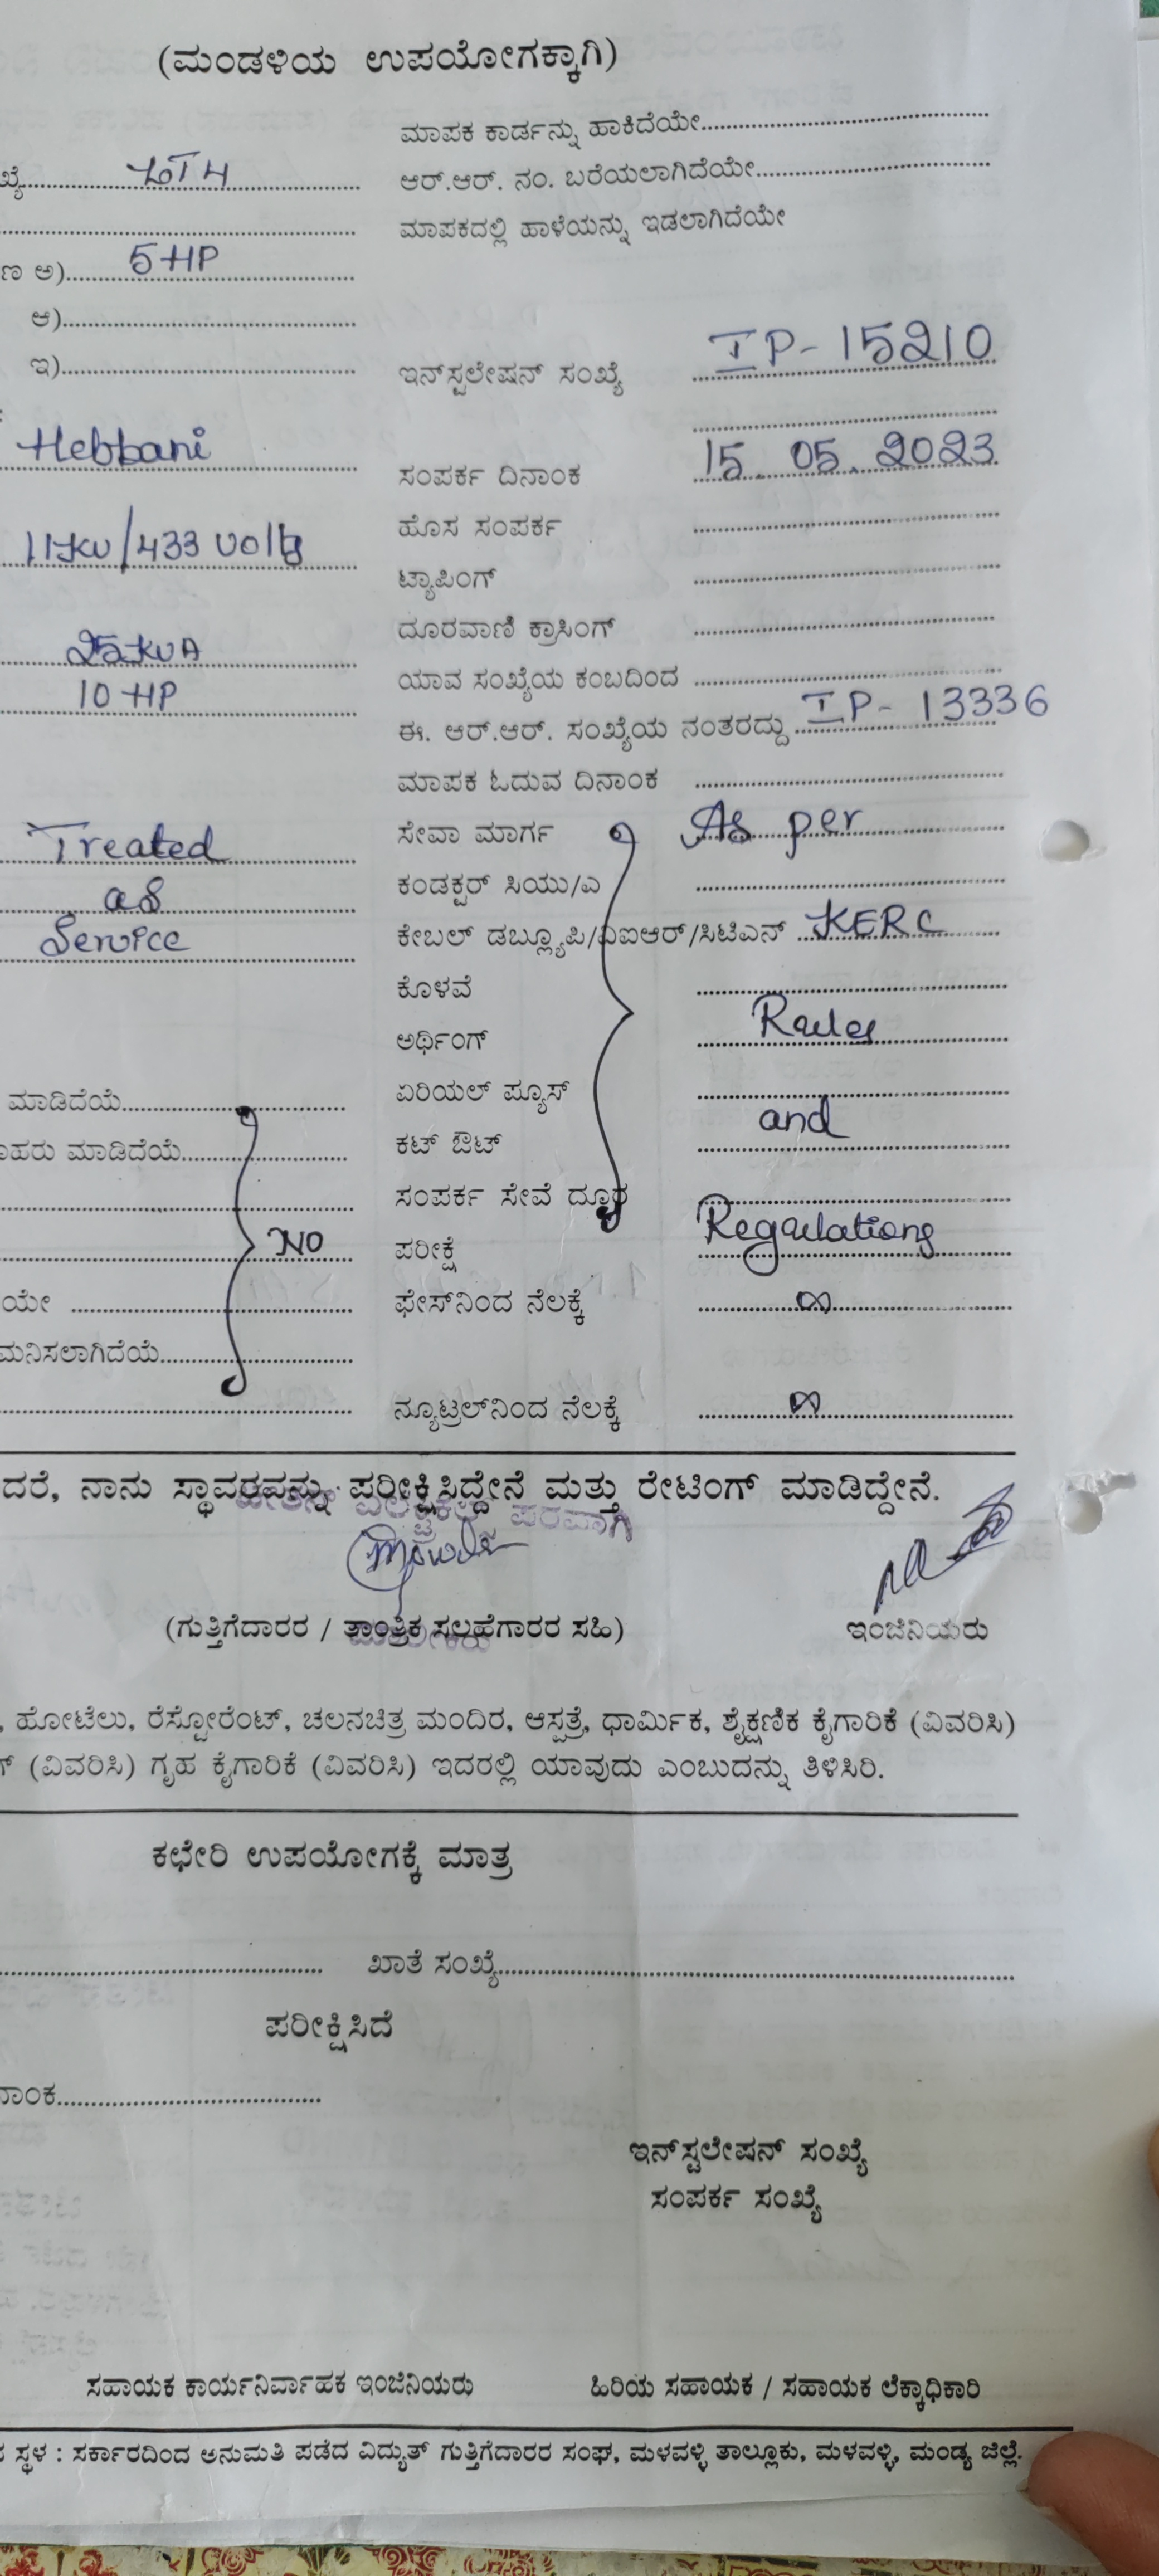 (ಮಂಡಳಿಯ ಉಪಯೋಗಕ್ಕಾಗಿ)
ಮಾಪಕ ಕಾರ್ಡನ್ನು ಹಾಕಿದೆಯೇ
LT4 ಆರ್.ಆರ್. ನಂ. ಬರೆಯಲಾಗಿದೆಯೇ
ಮಾಪಕದಲ್ಲಿ ಹಾಳೆಯನ್ನು ಇಡಲಾಗಿದೆಯೇ
ಣ ಅ) 5 HP
ಆ)
ಇ) ಇನ್‌ಸ್ಟಲೇಷನ್ ಸಂಖ್ಯೆ IP-15210
Hebbani ಸಂಪರ್ಕ ದಿನಾಂಕ 15.05.2023
11KV/433 Volts ಹೊಸ ಸಂಪರ್ಕ
ಟ್ಯಾಪಿಂಗ್
25KVA ದೂರವಾಣಿ ಕ್ರಾಸಿಂಗ್
10 HP ಯಾವ ಸಂಖ್ಯೆಯ ಕಂಬದಿಂದ
ಈ. ಆರ್.ಆರ್. ಸಂಖ್ಯೆಯ ನಂತರದ್ದು IP- 13336
ಮಾಪಕ ಓದುವ ದಿನಾಂಕ
Treated ಸೇವಾ ಮಾರ್ಗ As per
as ಕಂಡಕ್ಟರ್ ಸಿಯು/ಎ
Service ಕೇಬಲ್ ಡಬ್ಲ್ಯೂಪಿ/ವಿಐಆರ್/ಸಿಟಿಎನ್ KERC
ಕೊಳವೆ
ಅರ್ಥಿಂಗ್ Rules
ಮಾಡಿದೆಯೆ ಏರಿಯಲ್ ಪ್ಯೂಸ್
ಮಾಡಿದೆಯೆ ಕಟ್ ಔಟ್ and
ಸಂಪರ್ಕ ಸೇವೆ ದ್ಯೂರ
NO ಪರೀಕ್ಷೆ Regulations
ಯೇ ಫೇಸ್‌ನಿಂದ ನೆಲಕ್ಕೆ ∞
ಮನಿಸಲಾಗಿದೆಯೆ
ನ್ಯೂಟ್ರಲ್‌ನಿಂದ ನೆಲಕ್ಕೆ ∞
ದರೆ, ನಾನು ಸ್ಥಾವರವನ್ನು ಪರೀಕ್ಷಿಸಿದ್ದೇನೆ ಮತ್ತು ರೇಟಿಂಗ್ ಮಾಡಿದ್ದೇನೆ.
ಪರವಾಗಿ
(ಗುತ್ತಿಗೆದಾರರ / ತಾಂತ್ರಿಕ ಸಲಹೆಗಾರರ ಸಹಿ) ಇಂಜಿನಿಯರು
, ಹೋಟೆಲು, ರೆಸ್ಟೋರೆಂಟ್, ಚಲನಚಿತ್ರ ಮಂದಿರ, ಆಸ್ಪತ್ರೆ, ಧಾರ್ಮಿಕ, ಶೈಕ್ಷಣಿಕ ಕೈಗಾರಿಕೆ (ವಿವರಿಸಿ)
(ವಿವರಿಸಿ) ಗೃಹ ಕೈಗಾರಿಕೆ (ವಿವರಿಸಿ) ಇದರಲ್ಲಿ ಯಾವುದು ಎಂಬುದನ್ನು ತಿಳಿಸಿರಿ.
ಕಛೇರಿ ಉಪಯೋಗಕ್ಕೆ ಮಾತ್ರ
ಖಾತೆ ಸಂಖ್ಯೆ
ಪರೀಕ್ಷಿಸಿದೆ
ನಾಂಕ
ಇನ್‌ಸ್ಟಲೇಷನ್ ಸಂಖ್ಯೆ
ಸಂಪರ್ಕ ಸಂಖ್ಯೆ
ಸಹಾಯಕ ಕಾರ್ಯನಿರ್ವಾಹಕ ಇಂಜಿನಿಯರು ಹಿರಿಯ ಸಹಾಯಕ / ಸಹಾಯಕ ಲೆಕ್ಕಾಧಿಕಾರಿ
ಸ್ಥಳ : ಸರ್ಕಾರದಿಂದ ಅನುಮತಿ ಪಡೆದ ವಿದ್ಯುತ್ ಗುತ್ತಿಗೆದಾರರ ಸಂಘ, ಮಳವಳ್ಳಿ ತಾಲ್ಲೂಕು, ಮಳವಳ್ಳಿ, ಮಂಡ್ಯ ಜಿಲ್ಲೆ.